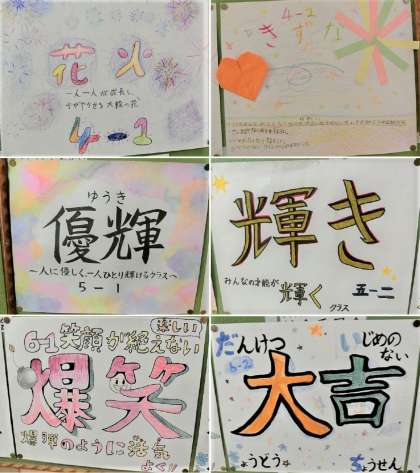 花火
一人一人が成長し
4-1
4-2
きずな
ゆうき
優輝
～人に優しく、一人ひとり輝けるクラス～
5-1
輝き
みんなの才能が
輝く
クラス
五-二
楽しい
6-1 笑顔が絶えない
爆笑
爆弾のように活気
よく!!
だんけつ
いじめの
ない
6-2
大吉
ちょうせん